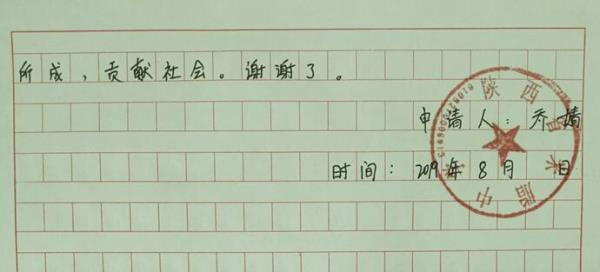 所成，贡献社会。谢谢了。
申请人：乔 婧
时间：2019年8月 日
陕西省米脂中